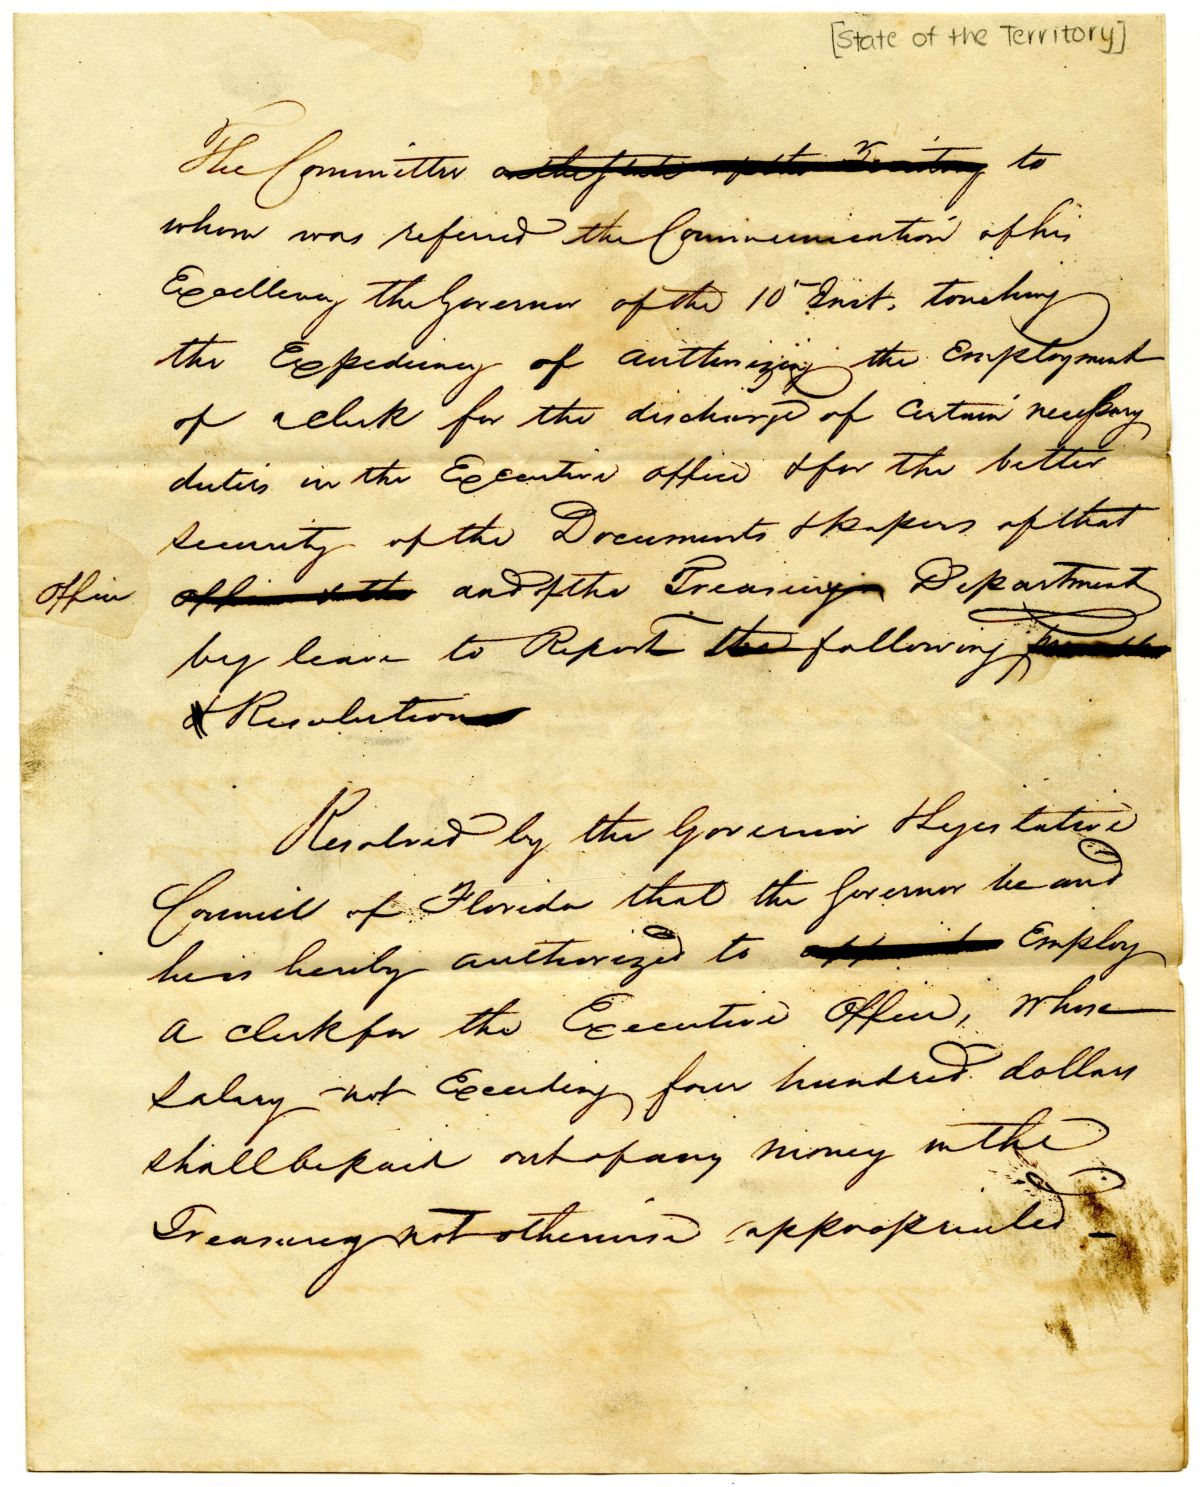 [State of the Territory]
The Committee on the State of the Territory to
whom was referred the Communication of his
Excellency the Governor of the 10th Inst. touching
the Expediency of authorizing the Employment
of a Clerk for the discharge of certain necessary
duties in the Executive office & for the better
security of the Documents & papers of that
Office office & the and of the Treasury Department
beg leave to Report the following
& Resolution
Resolved by the Governor & Legislative
Council of Florida that the Governor be and
he is hereby authorized to appoint Employ
a clerk for the Executive Office, whose
salary not Exceeding four hundred dollars
shall be paid out of any money in the
Treasury not otherwise appropriated